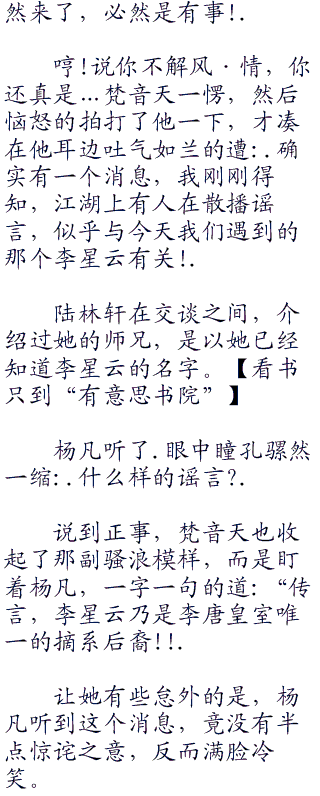 然来了，必然是有事!.
哼!说你不解风·情，你
还真是...梵音天一愣，然后
恼怒的拍打了他一下，才凑
在他耳边吐气如兰的遭:.确
实有一个消息，我刚刚得
知，江湖上有人在散播谣
言，似乎与今天我们遇到的
那个李星云有关!.
陆林轩在交谈之间，介
绍过她的师兄，是以她已经
知道李星云的名字。【看书
只到“有意思书院”】
杨凡听了.眼中瞳孔骡然
一缩:.什么样的谣言?.
说到正事，梵音天也收
起了那副骚浪模样，而是盯
着杨凡，一字一句的道:“传
言，李星云乃是李唐皇室唯
一的摘系后裔!!.
让她有些怠外的是，杨
凡听到这个消息，竟没有半
点惊诧之意，反而满脸冷
笑。